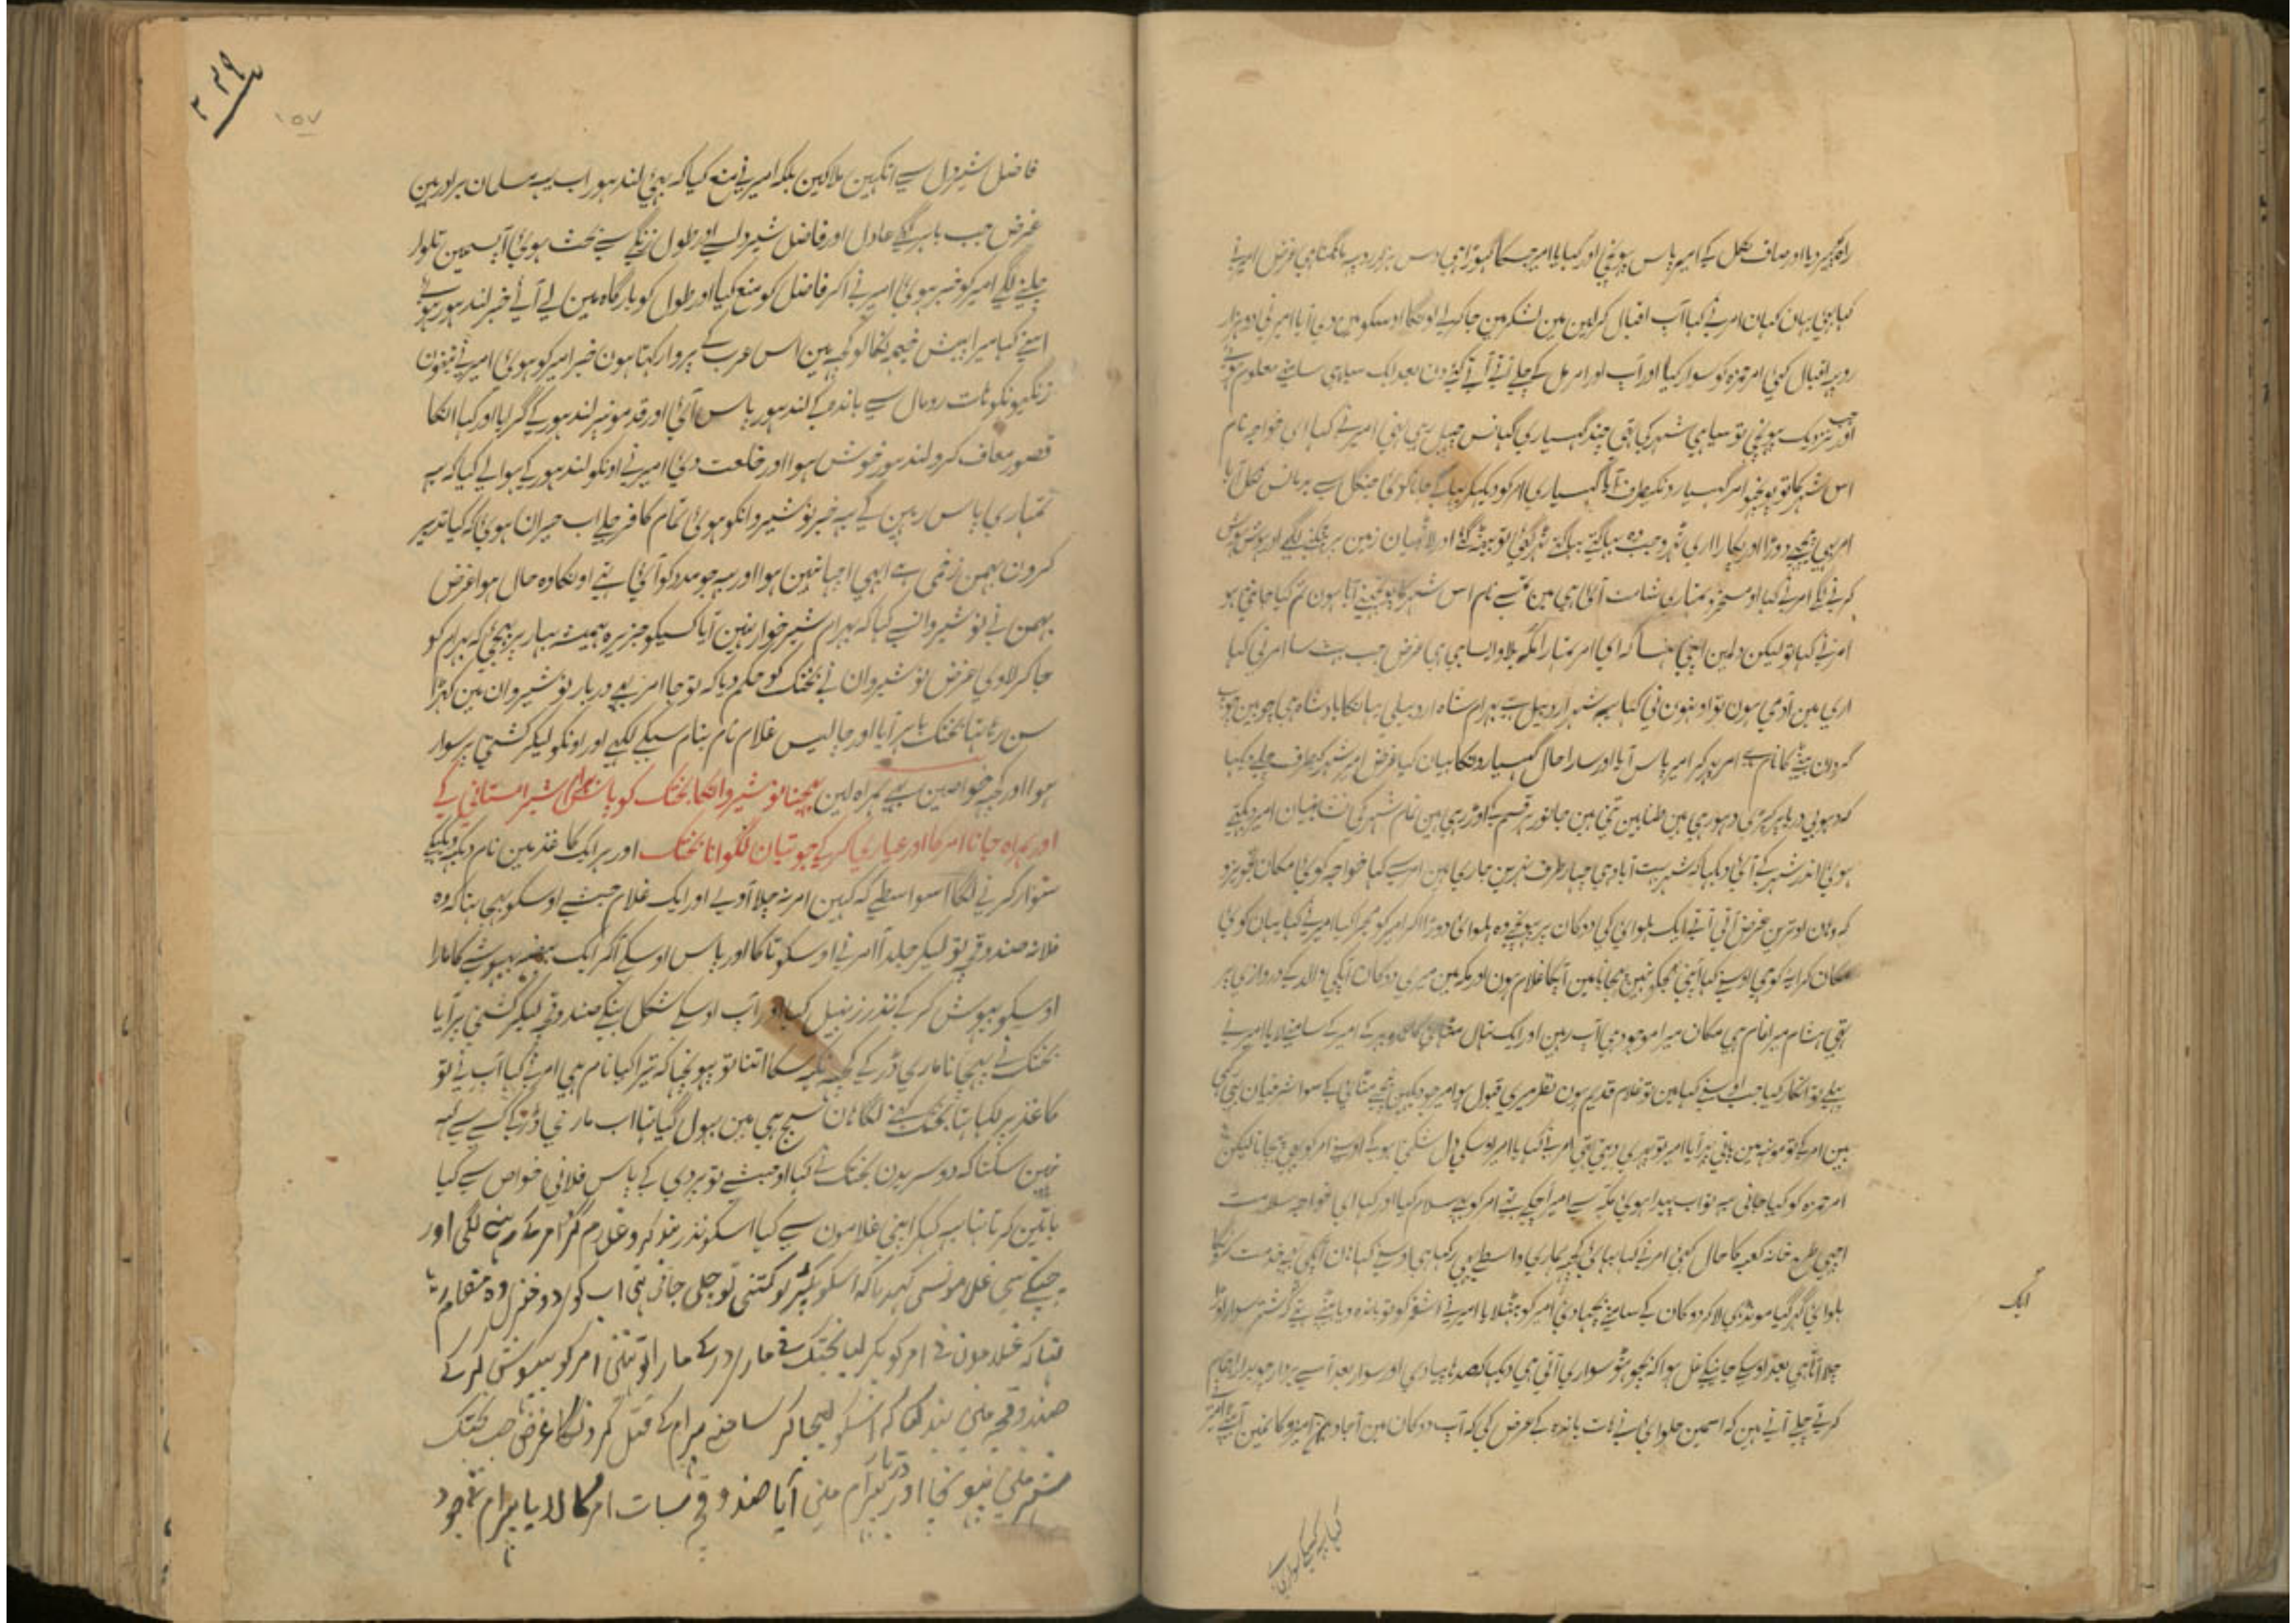 راہ پکڑ دیا اور صاف نکل کے امیر پاس پہونچی اور کہا یا امیر جسکا گھوڑا ہی دس ہزار روپیہ مانگتا ہی غرض امیر نے
کہا بہئی یہان کہان امر نے کہا آپ اقبال کرلین مین لشکر مین جا کے لونگا اوسکو مین دی آیا امیر نی دو ہزار
روپیہ اقبال کئی امر حمزہ کو سوار کیا اور آپ اور امر مل کے چلے آتے آتے کئے دن بعد ایک سیاہی سامنے معلوم ہوئے
اور جب نزدیک پہونچی تو سیاہی شہر کی تہی چند گہسیاری گہانس چہیل رہی تہی امیر نے کہا ای خواجہ نام
اس شہر کا تو پوچھو امر گہسیارونکیطرف آیا گہسیاری امر کو دیکہکر بہاگے جانا کوئی جنگل سے بن مانس نکل آیا
امر بہی پیچہے دوڑا اور پکارا اری ٹہرو جب وہ بہاگتے بہاگتے تہک گئی تو بیٹہہ گئے اور لاٹہیان زمین پر پٹکنے لگے اور ہوش ہوش
کرنے لگے امر نے کہا او مسخرو تمہاری شامت آئی ہی مین تمسے نام اس شہر کا پوچہنے آیا ہون تم کیا جانتی ہو
امر نے کہا تو لیکن دلمین اپنی ہنسا کہ ای امر تمہارا انگہ بلاو ایسا ہی ہی غرض جب بہت سا امر نی کہا
اری مین آدمی ہون تو اونہون نی کہا یہ شہر اردبیل ہے بہرام شاہ اردبیلی یہانکا بادشاہ ہی چوبین چوب
گردان بیٹے کا نام ہے امر پہر کر امیر پاس آیا اور سارا حال گہسیارونکا بیان کیا غرض امیر شہر کیطرف چلے دیکہا
کہ دہوبی دریا پر کپڑی دہو رہی ہین طنابین تنی ہین جانور ہر قسم کے اوڑ رہی ہین تمام شہر کی نشانیان امیر دیکہتے
ہوئی اندر شہر کے آئی دیکہا کہ شہر بہت آباد ہی چہار طرف نہرین جاری ہین امر سے کہا خواجہ کوئی مکان تجویز کرو
کہ وہان اوترین غرض آتی آتے ایک حلوائی کی دوکان پر پہونچے وہ حلوائی دوڑا آکر امیر کو مجرا کیا امیر نے کہا یہان کوئی
مکان کرایہ کو ہی اوسنے کہا آپنی مجہکو نہین پہچانا مین آپکا غلام ہون اور مکہ مین میری دوکان آپکی والد کے دروازی پر
تہی ہشام میرا نام ہی مکان میرا موجود ہی آپ رہین اور ایک تہال مٹہائی کا پر کے امیر کے سامنے لایا امیر نے
پہلے تو انکار کیا جب اوسنے کہا مین تو غلام قدیم ہون نظر میری قبول ہو امیر جو دیکہین نیچے مٹہائی کے سو اشرفیان تہی
بس امر کے تو مونہہ مین پانی بہر آیا امیر تو پہری دیتی تہی امر نے کہا یا امیر اوسکی دل شکنی ہوگی اوسنے امر کو بہی پہچانا لیکن
امر حمزہ کو کیا جانی یہ تو اب پیدا ہوئی مکہ سے امیر چکے تہے امر کو یہ سلام کیا اور کہا ای خواجہ سلامت
اچہی طرح خانہ کعبہ کا حال کہئی امر نے کہا بہائی کچہہ ہماری واسطے بہی رکہا ہی اوسنے کہا ہان آپکی بہی خدمت کرونگا
حلوائی گہر گیا مونڈہی لا کر دوکان کے سامنے بچہا دئی امیر کو بٹہلایا امیر نے اشقر کو تو باندہ دیا
چلا آتا ہی بعد اوسکے جانیکے غل ہوا کہ بچو ہٹو سواری آتی ہی دیکہا کہ صدہا پیادی اور سوار بعد اسکے بردار چوبدار اہتمام
کرتے چلے آتے ہین کہ اسمین حلوائی نے ہات باندہ کے عرض کی کہ آپ دوکان مین آجاو
ایک
فاضل شیردل سے انکہین ملاکین بلکہ امیر نے منع کیا کہ بہئی لندہور اب یہ مسلمان برادر ہین
غرض جب باہر آئے عادل اور فاضل شیردل سے اور طول زنگے سے بحث ہوئی آپسمین تلوار
چلنے لگے امیر کو خبر ہوئی امیر نے آکر فاضل کو منع کیا اور طول کو بارگاہ مین لے آئے خبر لندہور ہوئے
اسنے کہا میرا پیش خیمہ نکالو کہ مین اس عرب کے پروا رکہتا ہون خبر امیر کو ہوئی امیر نے تینون
زنگیونکو ہات رومال سے باندہکے لندہور پاس آئی اور قدمونپر لندہور کے گرایا اور کہا انکا
قصور معاف کرو لندہور خوش ہوا اور خلعت دئی امیر نے اونکو لندہور کے حوالے کیا کہ یہ
تمہاری پاس رہین گے یہ خبر نوشیروانکو ہوئی تمام کافر جلے اب حیران ہوئی کہ کیا تدبیر
کرون بہمن زخمی ہے ابہی اچہا نہین ہوا اور یہ جو مدد کو آئی تہے اونکا وہ حال ہوا غرض
بہمن نے نوشیروانسے کہا کہ بہرام شیر خوار نہین آیا کسیکو جزیرہ پر بہیجئے کہ بہرام کو
جا کر لاوی غرض نوشیروان نے بختک کو حکم دیا کہ تو جا امر بہی دربار نوشیروان مین کہڑا
سن رہا تہا بختک باہر آیا اور چالیس غلام نام بنام سبکے لکہے اور اونکو لیکر کشتی پر سوار
ہوا اور کچہہ خواصین بہی ہمراہ لین بہیجنا نوشیروانکا بختک کو پاس بہرام شیر استانی کے
اور ہمراہ جانا امر کا اور عیاری کر کے جوتیان لگوانا بختک اور ہر ایک کا غذ مین نام دیکہہ دیکہکے
سوار کرنے لگا اسواسطے کہ کہین امر نہ چلا آوے اور ایک غلام حبشے اوسکو بہیجا تہا کہ وہ
فلانہ صندوقچہ تو لیکر جلد آ امر نے اوسکو تاکا اور پاس اوسکے آکر ایک بیضہ بیہوشے کا مارا
اوسکو بیہوش کر کے نذر زنبیل کیا اور آپ اوسکے شکل بنکے صندوقچہ لیکر کشتی پر آیا
بختک نے پہچانا ماری ڈر کے کچہہ نکہہ سکا اتنا تو پوچہا کہ تیرا کیا نام ہی امر نے کہا آپ نے تو
کاغذ پر لکہا تہا بختک کہنے لگا ہان سچ ہی مین بہول گیا تہا اب ماری ڈر کے کسے سے کہہ
نہین سکتا کہ دوسریدن بختک نے کہا او حبشے تو پردی کے پاس فلانی خواص سے کیا
باتین کرتا تہا یہ کہکر اپنی غلامون سے کہا اسکو نذر بند کرو غلام گرد امر کے رہنے لگی اور
چپکے سی غلامونسی کہدیا کہ اسکو پکڑ لو کشتی تو چلی جاتی تہی اب کو
تہا کہ غلامون نے امر کو پکڑ لیا بختک نے مار در کے مارا لو تنی امر کو بیہوش کر کے
صندوقچہ مین بند کیا کہ اسکو لیجا کر سامنے بہرام کے قتل کرونگا غرض جب بختک
شہر مین پہونچا اور دربار بہرام مین آیا صندوقچہ سات امر کا لایا بہرام